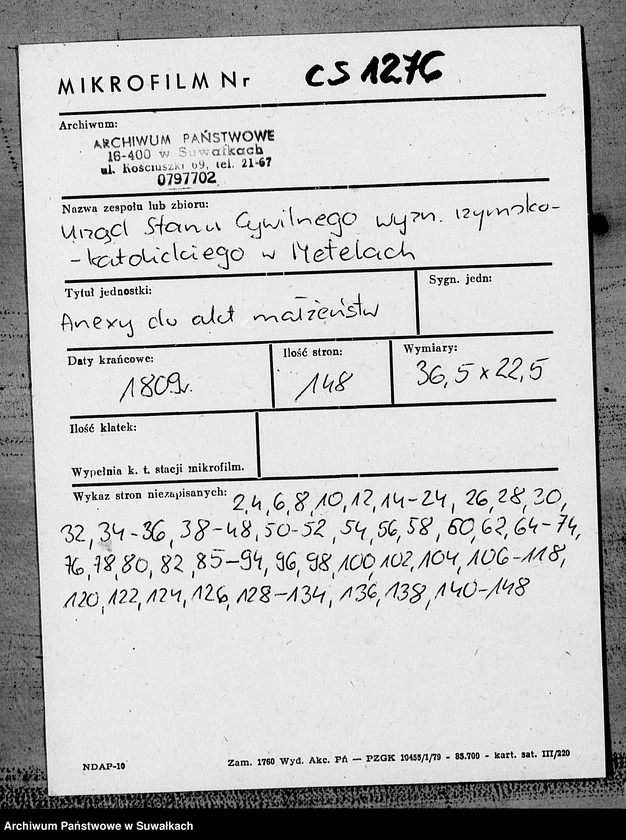 MIKROFILM Nr CS 1276
Archiwum:
ARCHIWUM PAŃSTWOWE
16-400 w Suwałkach
ul. Kościuszki 69, tel. 21-67
0797702
Nazwa zespołu lub zbioru:
Urząd Stanu Cywilnego wyzn. rzymsko-
-katolickiego w Metelach
Tytuł jednostki:
Sygn. jedn:
Anexy do akt małżeństw
Daty krańcowe:
Ilość stron:
Wymiary:
1809r.
148
36,5 x 22,5
Ilość klatek:
Wypełnia k. t. stacji mikrofilm.
Wykaz stron niezapisanych: 2,4,6,8,10,12,14-24, 26,28,30,
32,34-36,38-48,50-52,54,56,58,60,62,64-74,
76,78,80,82,85-94,96,98,100,102,104,106-118,
120,122,124,126,128-134,136,138,140-148
NDAP-10
Zam. 1760 Wyd. Akc. Pń — PZGK 10455/1/79 - 85.700 - kart. sat. III/220
Archiwum Państwowe w Suwałkach